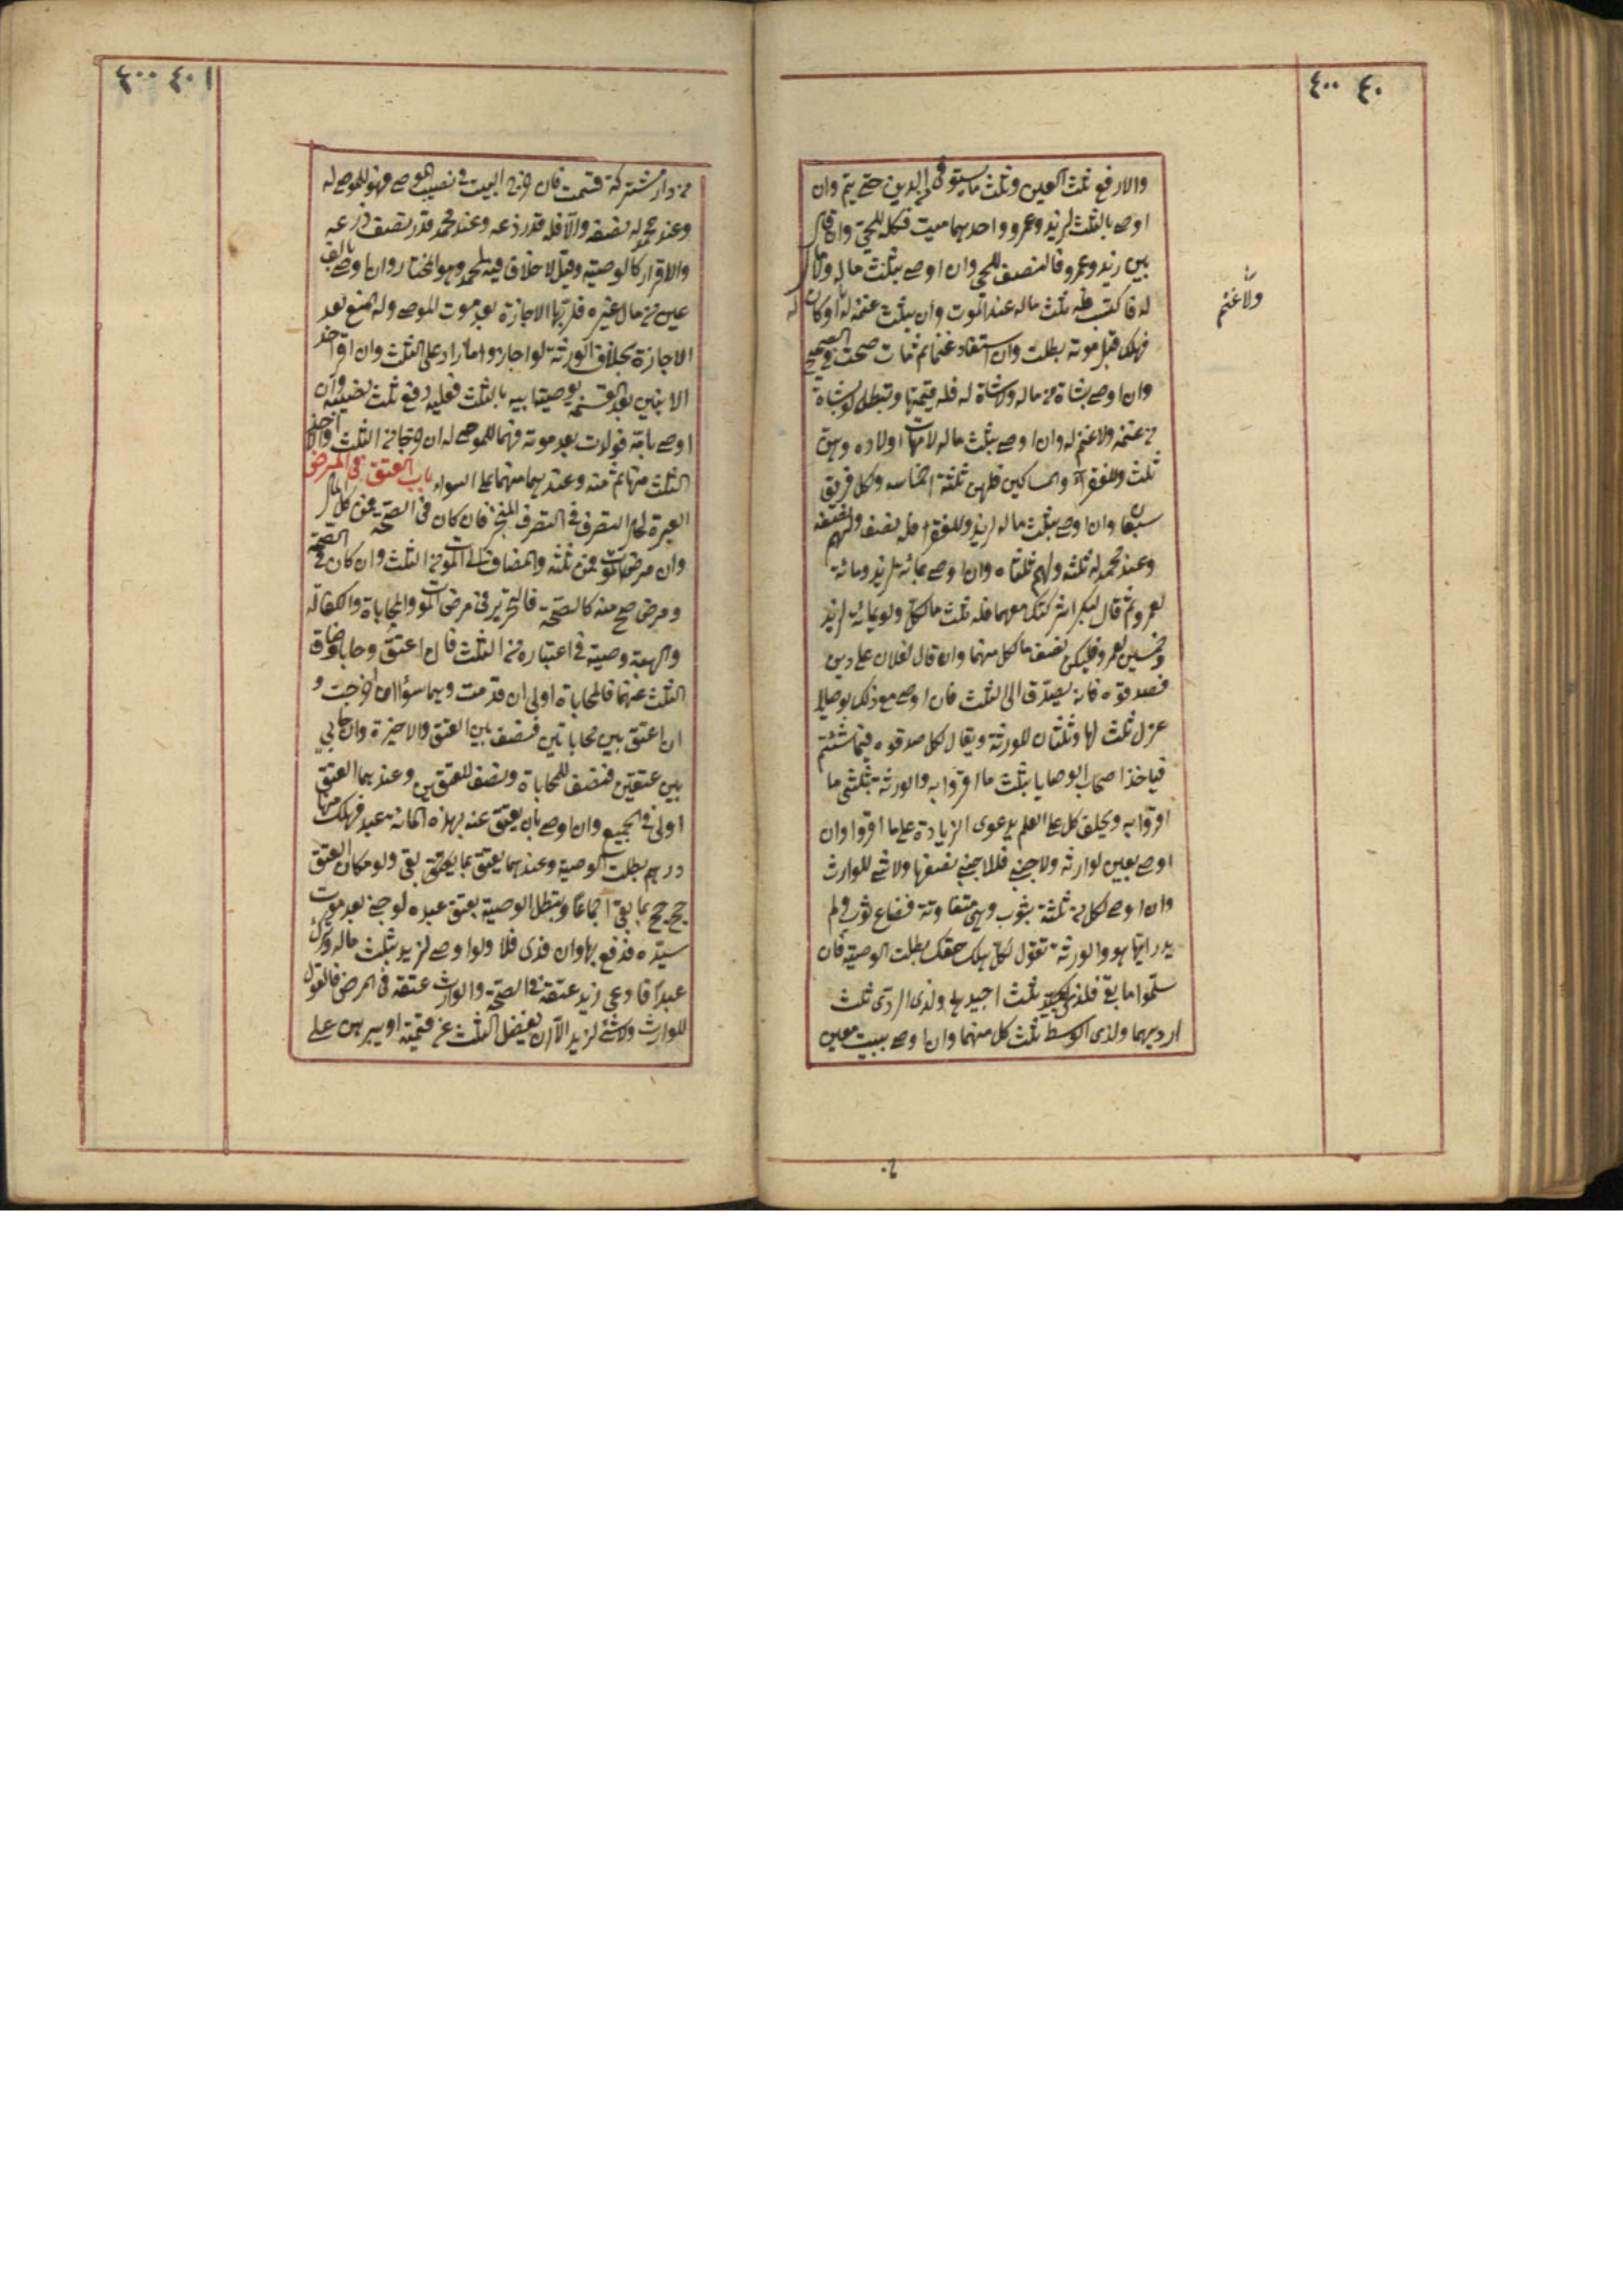 ٤٠٠ ٤٠
والا دفع ثلث العين وثلث ما يستوفى من الدين حتى يتم وان
اوصى بالثلث لزيد وعمرو واحدهما ميت فكله للحي وان قال
بين زيد وعمرو فالنصف للحي وان اوصى بثلث ماله ولا مال
له فاكتسب فله ثلث ماله عند الموت وان بثلث غنمه ولا غنم له او كان له
فهلك قبل موته بطلت وان استفاد غنما ثم مات صحت في الصحيح
وان اوصى بشاة من ماله ولا شاة له فله قيمتها وتبطل لو بشاة
من غنمه ولا غنم له وان اوصى بثلث ماله لامهات اولاده وهن
ثلث وللفقراء والمساكين فلهن ثلثة اخماسه ولكل فريق
وان اوصى بثلث ماله لزيد وللفقراء فله نصفه ولهم نصفه
وعند محمد له ثلثه ولهم ثلثاه وان اوصى بمائة لزيد ومائة
لعمرو ثم قال لبكر اشركتك معهما فله ثلث ما لكل ولو بمائة لزيد
وخمسين لعمرو فلبكر نصف ما لكل منهما وان قال لفلان علي دين
فصدقوه فانه يصدق الى الثلث فان اوصى مع ذلك بوصايا
عزل ثلث لها وثلثان للورثة ويقال لكل صدقوه فيما شئتم
فياخذ اصحاب الوصايا بثلث ما اقروا به والورثة بثلثي ما
اقروا به ويحلف كل على العلم بدعوى الزيادة على ما اقروا وان
اوصى بعين لوارثه ولاجنبي فللاجنبي نصفها ولا شئ للوارث
وان اوصى لكل من ثلثة بثوب وهي متفاوتة فضاع ثوب ولم
يدر ايها هو والورثة تقول لكل هلك حقك بطلت الوصية فان
سلموا ما بقي فلذي الجيد ثلث اجيدهما ولذي الردى ثلث
ارديهما ولذي الوسط ثلث كل منهما وان اوصى ببيت معين
ولا غنم
٤٠٠ ٤٠١
من دار مشتركة قسمت فان خرج البيت في نصيب الموصى فهو للموصى له
وعند محمد له نصفه والا فله قدر ذرعه وعند محمد قدر نصف ذرعه
والاقرار كالوصية وقيل لا خلاف فيه لمحمد وهو المختار وان اوصى بالف
عين من مال غيره فلربها الاجازة بعد موت الموصى وله المنع بعد
الاجازة بخلاف الورثة لو اجازوا ما زاد على الثلث وان اقر احد
الابنين بعد القسمة بوصية ابيه بالثلث فعليه دفع ثلث نصيبه وان
اوصى بامة فولدت بعد موته فهما للموصى له ان خرجا من الثلث والا اخذ
الثلث منها ثم منه وعندهما منهما على السواء باب العتق في المرض
العبرة لحال التصرف في التصرف المنجز فان كان في الصحة فمن كل المال
وان مرض الموت فمن ثلثه والمضاف الى الموت من الثلث وان كان في الصحة
ومرض صح منه كالصحة فالتحرير في مرض الموت والمحاباة والكفالة
والهبة وصية في اعتباره من الثلث فان اعتق وحابا وضاق
الثلث عنهما فالمحاباة اولى ان قدمت وهما سواء ان اخرت و
ان اعتق بين محاباتين فنصف بين العتق والاخيرة وان حابى
بين عتقين فنصف للمحاباة ونصف للعتقين وعندهما العتق
اولى في الجميع وان اوصى بان يعتق عنه بهذه المائة عبد فهلك منها
درهم بطلت الوصية وعندهما يعتق بما بقي ولو مكان العتق
حج حج بما بقي اجماعا وتبطل الوصية بعتق عبده لو جنى بعد موت
سيده فدفع بها وان فدى فلا ولو اوصى لزيد بثلث ماله وترك
عبدا فادعى زيد عتقه في الصحة والوارث عتقه في المرض فالقول
للوارث ولا شئ لزيد الا ان يفضل الثلث عن قيمته او يبرهن على